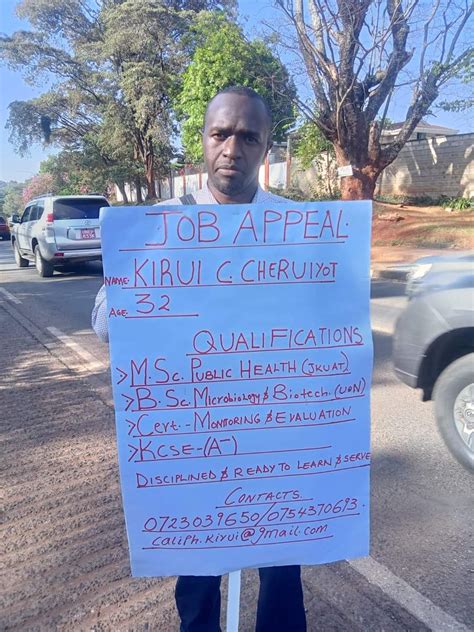 JOB APPEAL
NAME: KIRUI C. CHERUIYOT
AGE: 32
QUALIFICATIONS
>M.Sc. PUBLIC HEALTH (JKUAT)
>B.Sc. MICROBIOLOGY & BIOTECH. (UON)
>CERT.- MONITORING & EVALUATION
>KCSE-(A-)
DISCIPLINED & READY TO LEARN & SERVE
CONTACTS
0723039650/0754370693
caliph.kirui@gmail.com